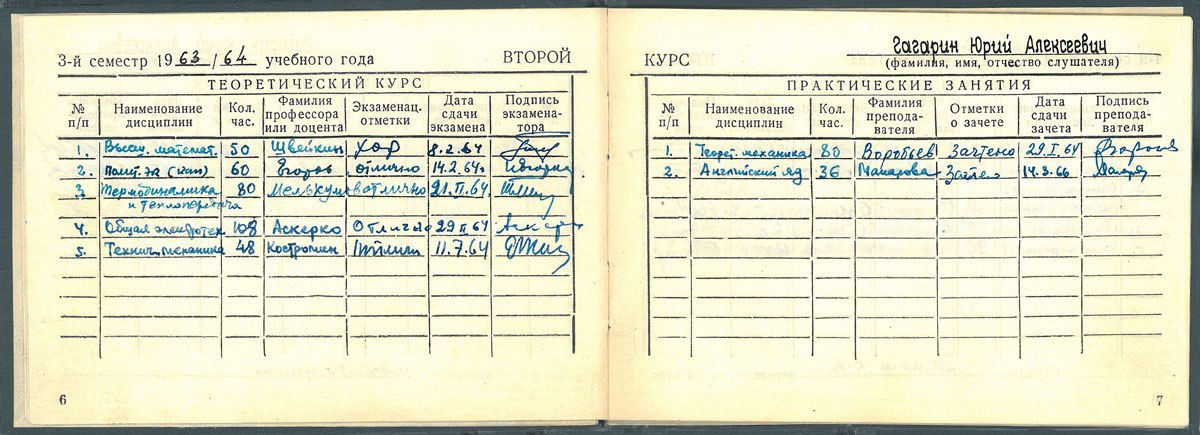 3-й семестр 1963/64 учебного года ВТОРОЙ
ТЕОРЕТИЧЕСКИЙ КУРС
№ п/п Наименование дисциплин Кол. час. Фамилия профессора или доцента Экзаменац. отметки Дата сдачи экзамена Подпись экзамена-тора
1. Высш. математ. 50 Швейкин хор 8.2.64
2. Полит. эк (кап) 60 Егоров отлично 14.2.64
3. Термодинамика 80 Мелькумов отлично 21.II.64
и теплопередача
4. Общая электротех 108 Аскерко Отлично 29 II 64
5. Технич. механика 48 Костромин 11.7.64
6
КУРС Гагарин Юрий Алексеевич
(фамилия, имя, отчество слушателя)
ПРАКТИЧЕСКИЕ ЗАНЯТИЯ
№ п/п Наименование дисциплин Кол. час. Фамилия препода-вателя Отметки о зачете Дата сдачи зачета Подпись препода-вателя
1. Теорет. механика 80 Воробьев Зачтено 29.I.64
2. Английский яз 36 Макарова Зачтено
7